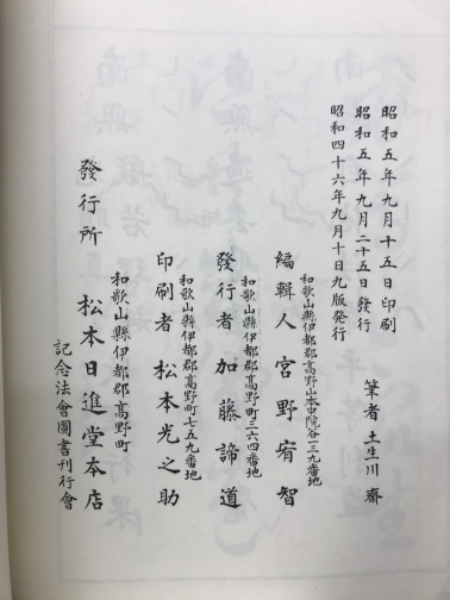 昭和五年九月十五日印刷
昭和五年九月二十五日發行
昭和四十六年九月十日九版発行
筆者 土生川 齋
和歌山縣伊都郡高野山本中院谷一三九番地
編輯人 宮野宥智
和歌山縣伊都郡高野町三六四番地
發行者 加藤諦道
和歌山縣伊都郡高野町七五九番地
印刷者 松本光之助
和歌山縣伊都郡高野町
發行所 松本日進堂本店
記念法會圖書刊行會